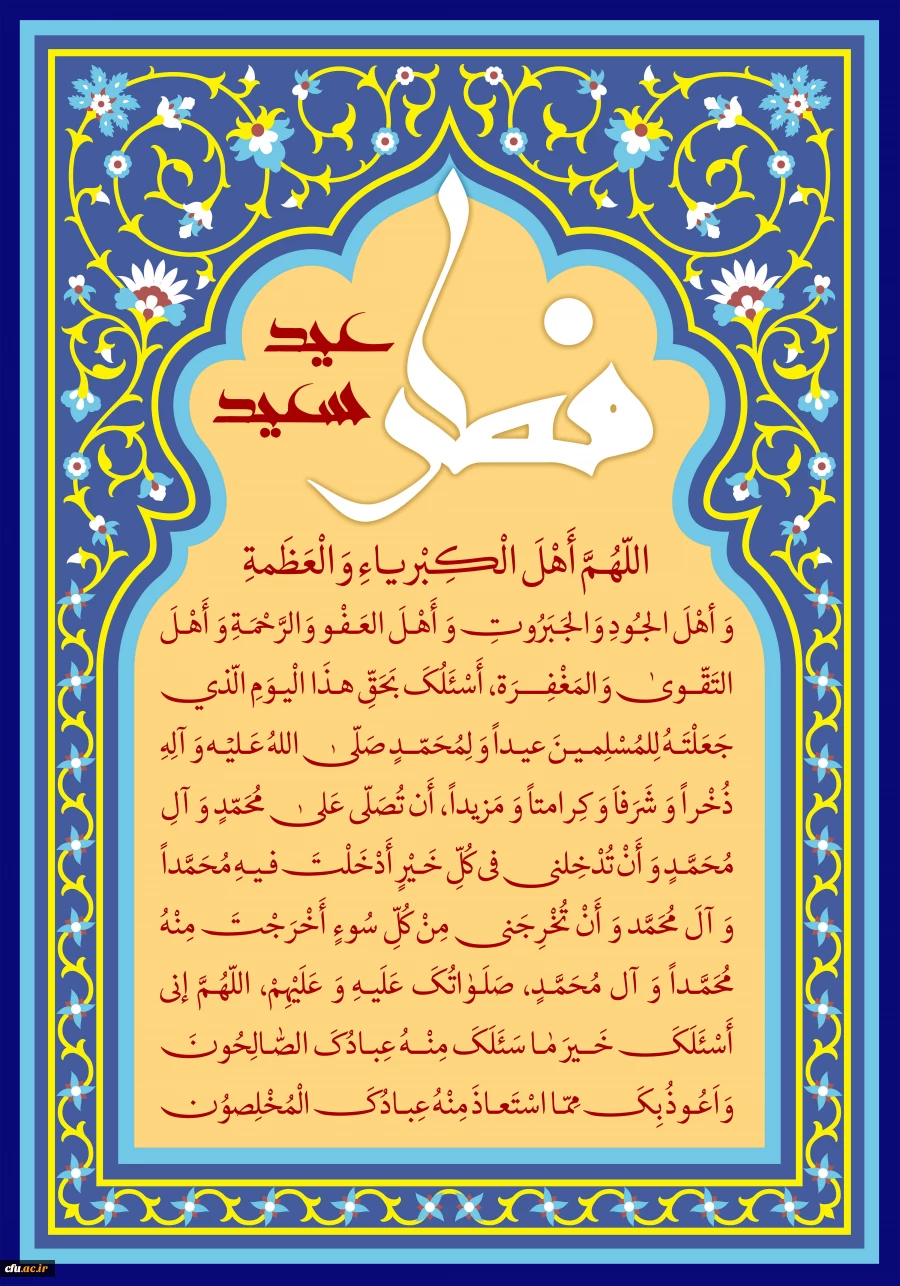 عید
سعید
فطر
اللّهُمَّ أَهْلَ الْکِبْریاءِ وَ الْعَظَمةِ
وَ أهْلَ الجُودِ وَ الجَبَرُوتِ وَ أَهْلَ العَفْو وَ الرَّحْمَةِ وَ أَهْلَ
التَقّوىٰ وَ المَغْفِرَة، أَسْئلُکَ بَحَقِّ هذَا الْیومِ الّذي
جَعَلْتَهُ لِلمُسْلِمینَ عیداً وَ لِمُحَمّدٍ صَلّی اللهُ عَلیْه وَ آلِهِ
ذُخْراً وَ شَرَفاَ وَ کِرامتاً وَ مَزیداً، أَن تُصَلّی عَلیٰ مُحَمّدٍ وَ آلِ
مُحَمَّدٍ وَ أَنْ تُدْخِلنی فی کُلِّ خَیْرٍ أَدْخَلْتَ فیهِ مُحَمَّداً
وَ آلَ مُحَمَّد وَ أَنْ تُخْرِجَنی مِنْ کُلِّ سُوءٍ أَخْرَجْتَ مِنْهُ
مُحَمَّداً وَ آل مُحَمَّدٍ، صَلَوٰاتُکَ عَلَیهِ وَ عَلَیْهِمْ، اللّهُمَّ إنی
أَسْئَلَکَ خَیرَ مٰا سَئَلَکَ مِنْهُ عِبادُکَ الصّٰالِحُونَ
وَ اَعُوذُ بِکَ مِمّا اسْتَعاذَ مِنْهُ عِبادُکَ الْمُخْلِصوُن
cfu.ac.ir